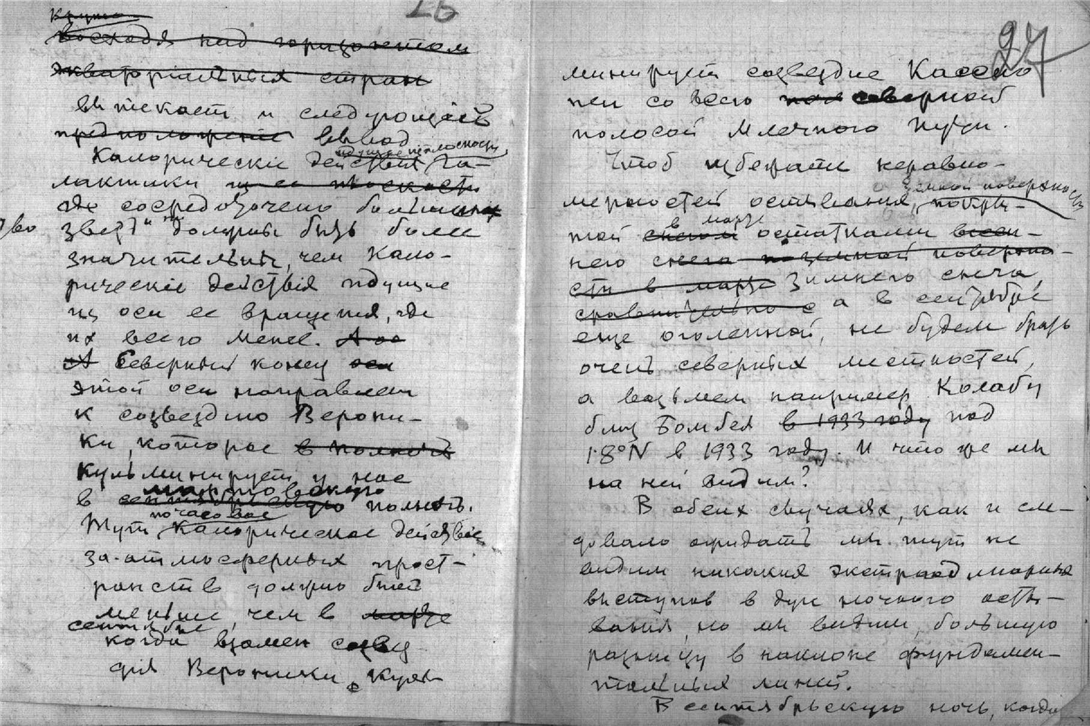 26
восходя над горизонтом
экваторiальных стран
вытекает и следующiй
предположенiе вывод
идущiе из плоскости
Калорическiе действiя Га-
лактики из ея плоскости
где сосредоточено большин
ство
звезд, должны быть более
значительны, чем Кало-
рическiе действiя идущие
из оси ее вращения, где
их всего менее.
А Северный конец оси
этой оси направлен
к созвездию Верони-
ки, которое в полночь
Кульминирует у нас
мартовскую
в сентябрьскую полночь.
почасовое
Тут Калорическое действие
за-атмосферных прост-
ранств должно быть
меньше, чем в марте
сентябре
когда взамен созвез
дия Вероники, Куль
27
минирует созвездие Кассио
пеи со всею северной
полосой Млечного Пути.
Чтоб избегать неравно-
земной поверхности
мерностей остывания, покры-
в марте
той остатками весен-
него снега по земной поверхно-
сти в марте Зимнего снега,
сравнительно с а в сентябре
еще оголенной, не будем брать
очень северных местностей,
а возьмем например Колабу
близ Бомбея в 1933 году под
18°N в 1933 году. И что же мы
на ней видим?
В обеих случаях, как и сле-
довало ожидать мы тут не
видим никаких экстраординарных
выступов в дуге ночного осты-
вания, но мы видим, большую
разницу в наклоне фундамен-
тальных линий.
В сентябрьскую ночь, когда